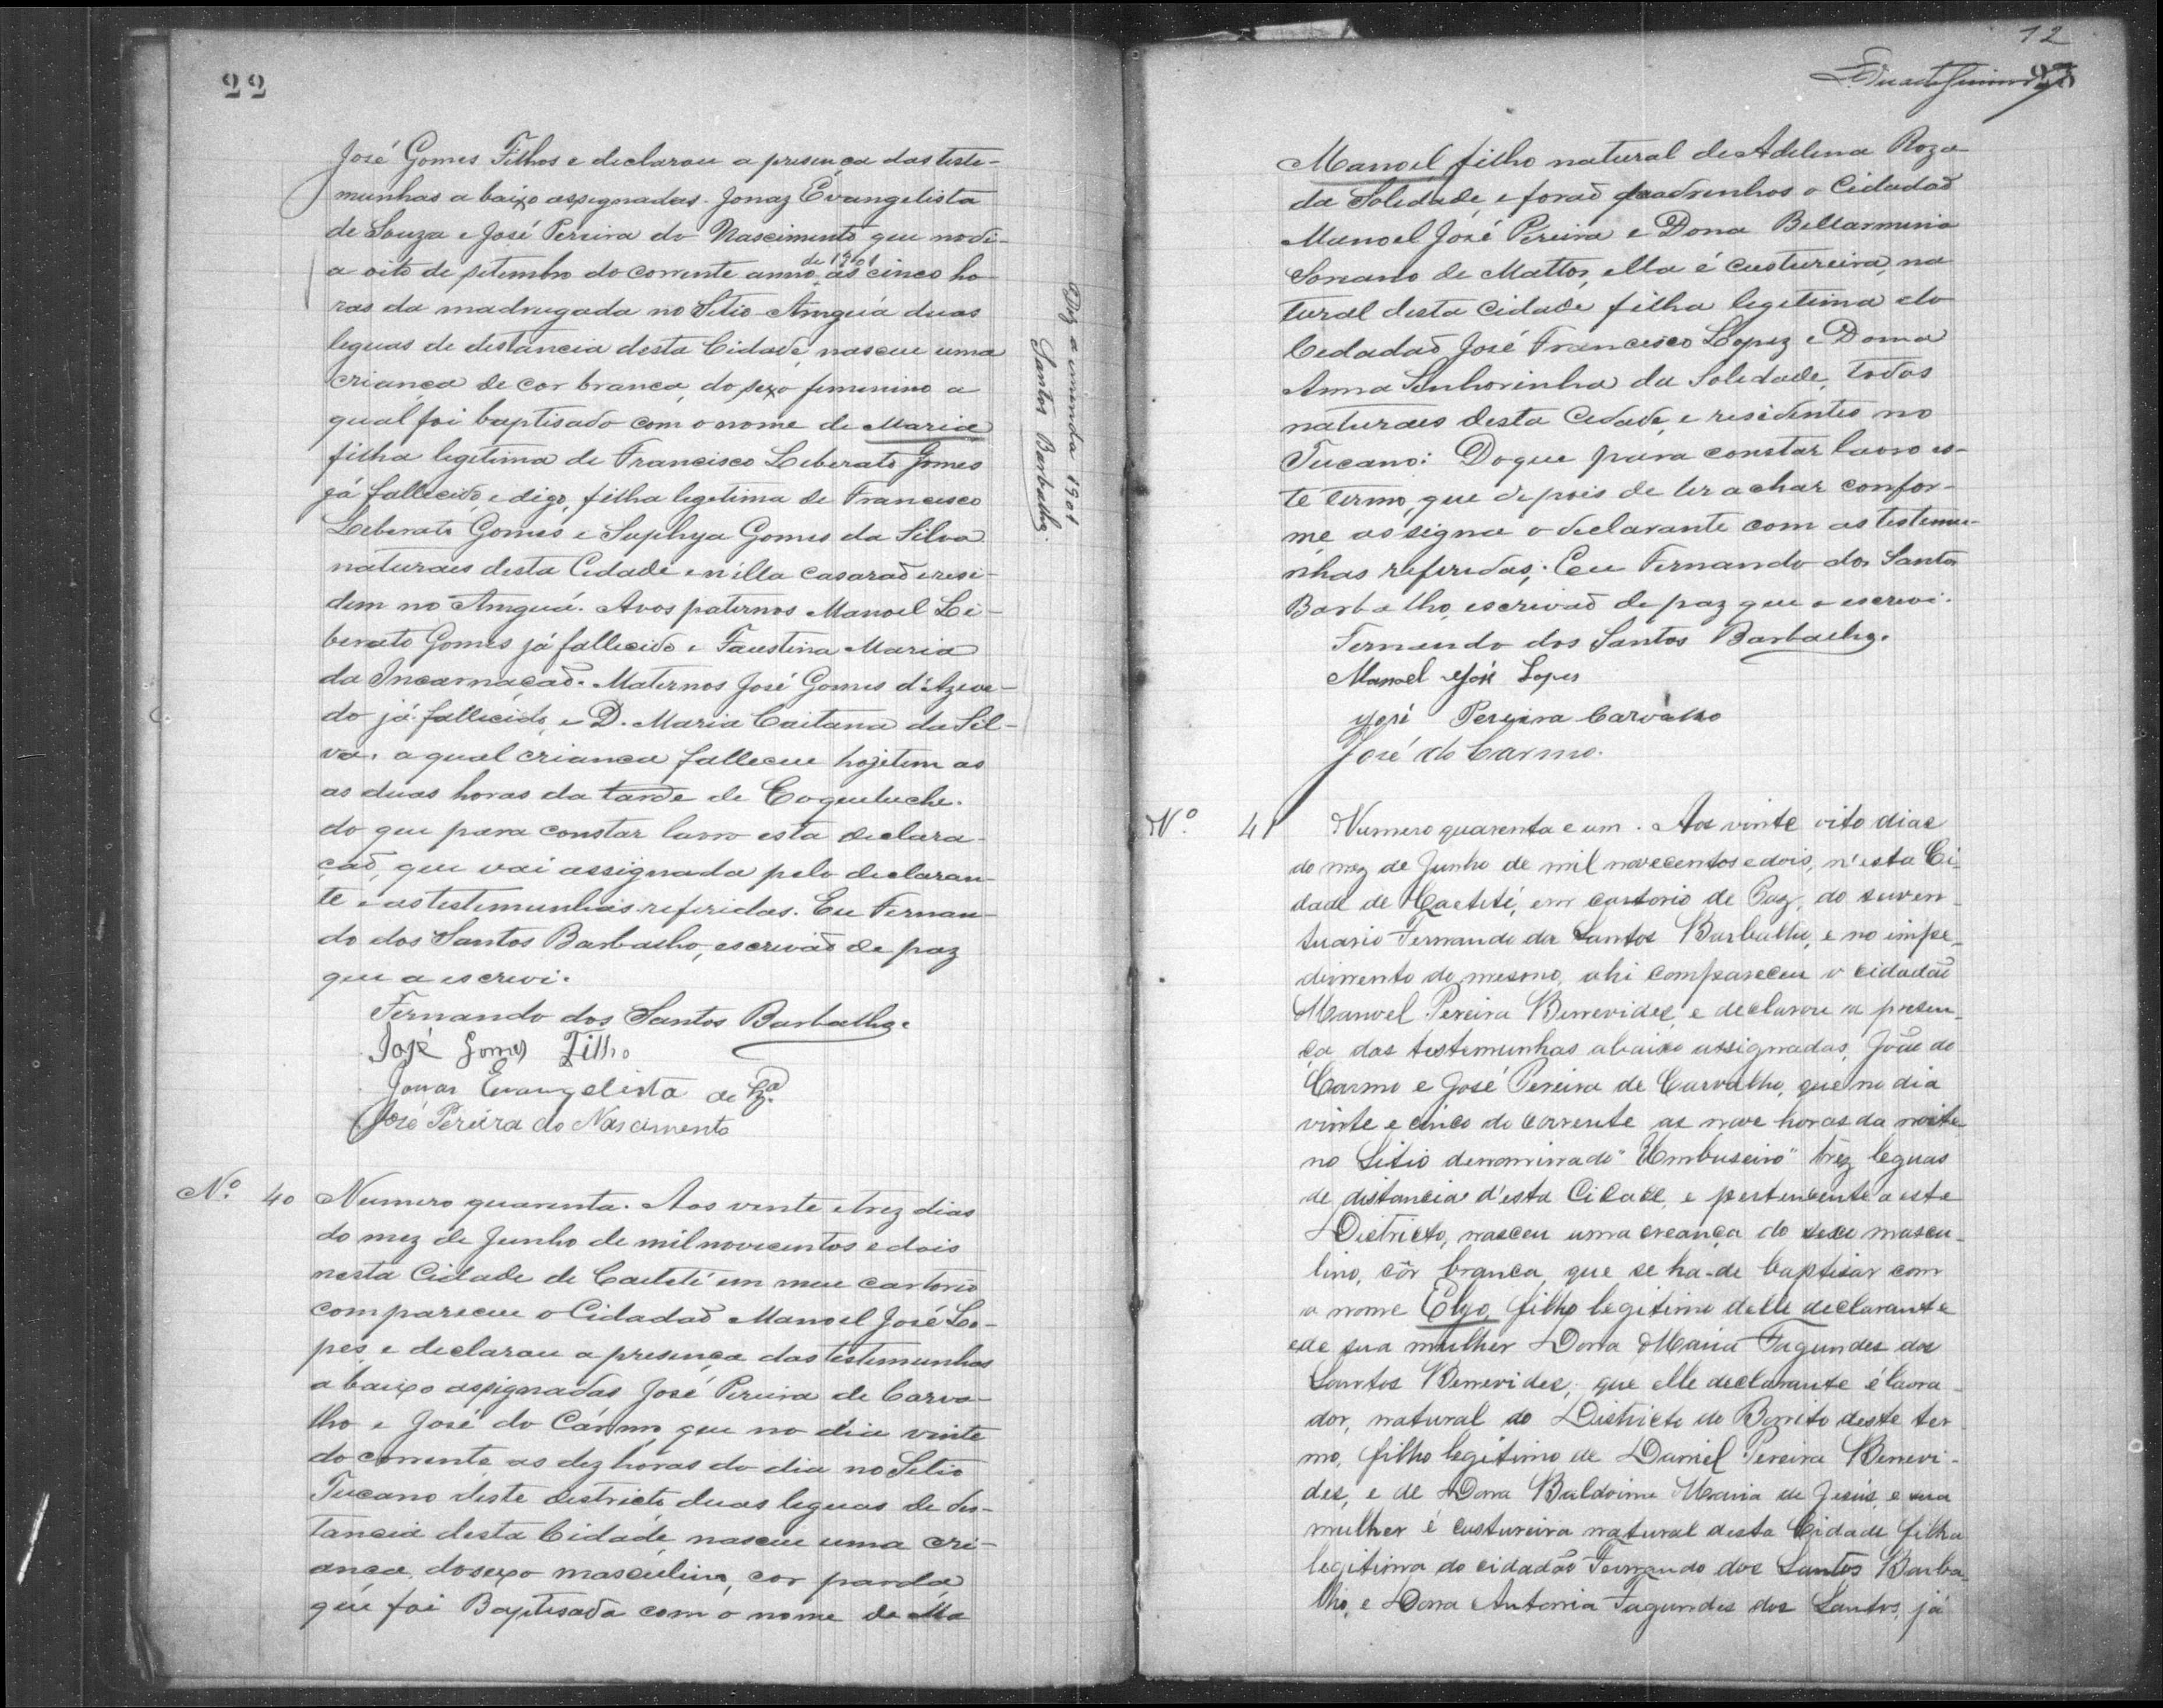 22
José Gomes Filhos e declarou a presença das teste-
munhas a baixo assignadas. Jonaz Evangelista
de Souza e José Pereira do Nascimento que no di-
a oito de setembro do corrente anno de 1901 as cinco ho-
ras da madrugada no Sitio Anguá duas
leguas de distancia desta Cidade, nasceu uma
criança de cor branca, do sexo femenino a
qual foi baptisado com o nome de Maria
filha legitima de Francisco Leberato Gomes
já fallecido, e digo, filha legitima de Francisco
Leberato Gomes e Saphya Gomes da Silva
naturaes desta Cidade e n'illa casarão e resi-
dem no Anguá. Avos paternos Manoel Li-
berato Gomes já fallecido e Faustina Maria
da Incarnação. Maternos José Gomes d'Azeve-
do já fallecido, e D. Maria Caitana da Sil-
va. a qual criança falleceu hojetem as
as duas horas da tarde de Coqueluche.
do que para constar lavro esta declara-
ção, que vai assignada pelo declaran-
te e as testemunhas referidas. Eu Fernan-
do dos Santos Barbalho, escrivão de paz
que a escrevi.
Fernando dos Santos Barbalho.
José Gomes Filho
Jonas Evangelista de Sza.
José Pereira do Nascimento
Diz a emenda 1901
Santos Barbalho.
Nº 40 Numero quarenta. Aos vente e trez dias
do mez de Junho de mil novecentos e dois
nesta Cidade de Caeteté em meu cartorio
compareceu o Cidadão Manoel José Lo-
pes, e declarau a presença das testemunhas
a baixo assignadas José Pereira de Carva-
lho e José do Carmo, que no dia vinte
do corrente as dez horas do dia no Setio
Tucano deste districto duas leguas de des-
tancia desta Cidade, nasceu uma cri-
ança, do sexo masculino, cor parda
que foi Baptisada com o nome de Ma
12
23
Manoel filho natural de Adelina Roza
da Soledade, e forão padrinhos o Cidadão
Manoel José Pereira e Dona Bellarmina
Soriano de Mattos, ella é custureira, na
tural desta Cidade filha legetima do
Cedadão José Francisco Lopez e Dona
Anna Senhorinha da Soledade, todos
naturaes desta Cedade, e residentes no
Tucano: Do que para constar lavro es-
te termo, que depois de ler a achar confor-
me assigna o declarante com as testemu-
nhas referidas; Eu Fernando dos Santos
Barbalho, escrivão de paz que o escrevi.
Fernando dos Santos Barbalho.
Manoel José Lopes
José Pereira Carvalho
José do Carmo.
Nº 41 Numero quarenta e um. Aos vinte oito dias
do mez de Junho de mil novecentos e dois, n'esta Ci-
dade de Caeteté, em cartorio de Paz, do suven-
tuario Fernando dos Santos Barbalho, e no impe-
dimento do mesmo, ahi compareceu o cidadão
Manoel Pereira Benevides, e declarou a presen-
ça das testemunhas abaixo assignadas, João do
Carmo e José Pereira de Carvalho, que no dia
vinte e cinco do corrente as nove horas da noite
no Sitio denominado "Umbuseiro" trez leguas
de distancia d'esta Cidade, e pertencente a este
Districto, nasceu uma creança do sexo mascu-
lino, côr branca, que se ha-de baptisar com
o nome Elyo, filho legitimo delle declarante
e de sua mulher Dona Maria Fagundes dos
Santos Benevides; que elle declarante é lavra-
dor, natural do Districto do Bonito deste ter-
mo, filho legitimo de Daniel Pereira Benevi-
des, e de Dona Baldoina Maria de Jesus, e sua
mulher é custureira natural desta Cidade filha
legitima do cidadão Fernando dos Santos Barba-
lho, e Dona Antonia Fagundes dos Santos, já